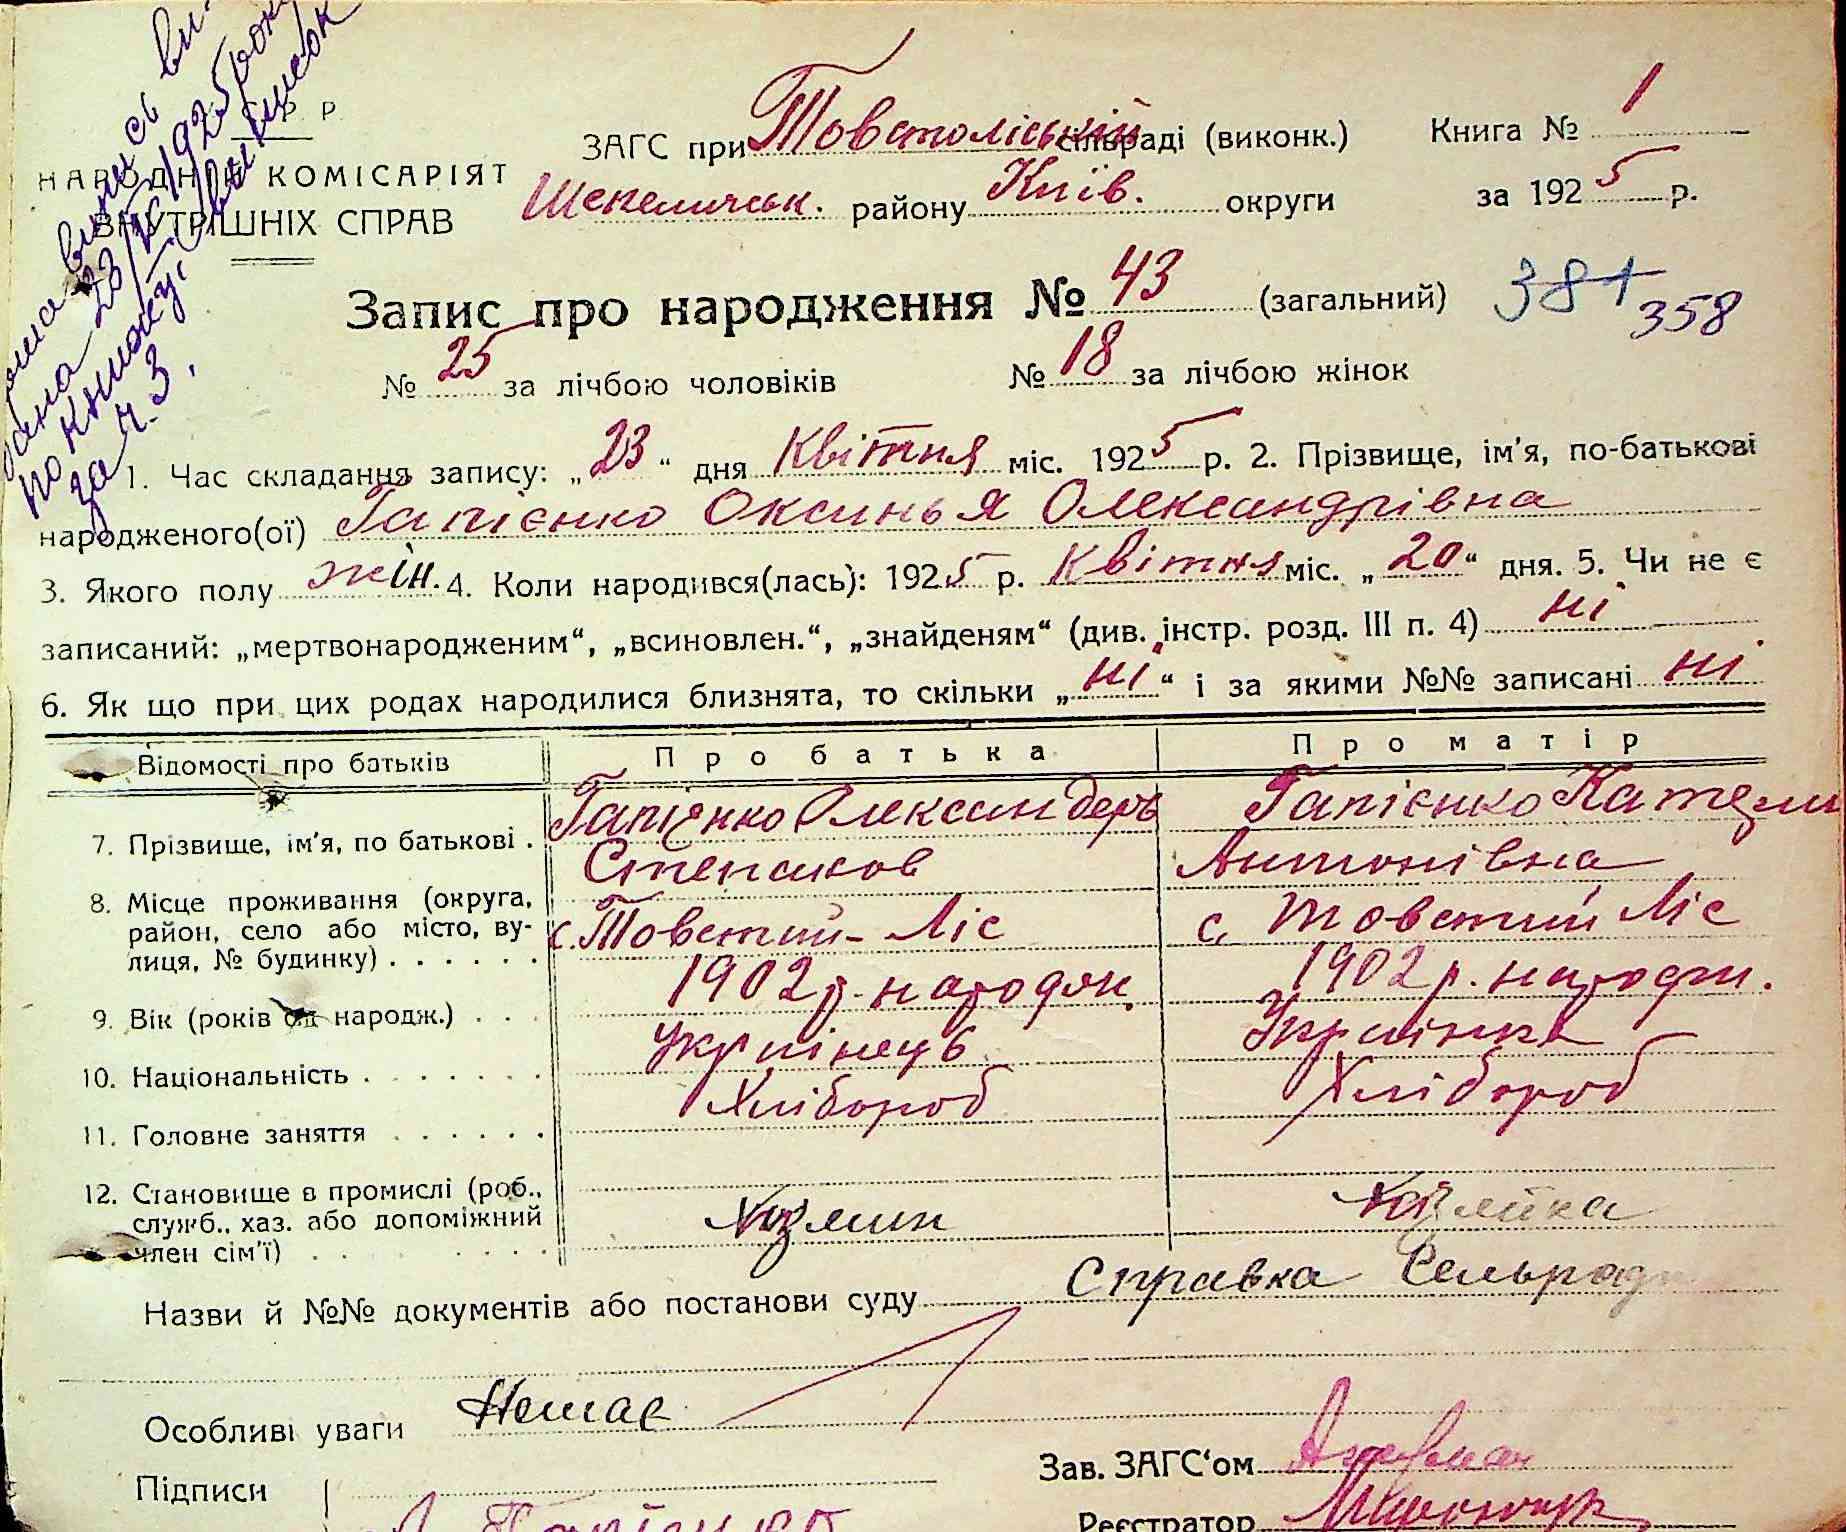 С Р Р
НАРОДНІЙ КОМІСАРІЯТ
ВНУТРІШНІХ СПРАВ
випись
23/IV 1925 рок
по книжці виписок
за ч. 3.
ЗАГС при Товстоліській сільраді (виконк.) Книга № 1
Шепелиськ. району Київ. округи за 1925 р.
Запис про народження № 43 (загальний) 381 358
№ 25 за лічбою чоловіків № 18 за лічбою жінок
1. Час складання запису: „23“ дня Квітня міс. 1925 р. 2. Прізвище, ім'я, по-батькові
народженого(ої) Гапієнко Оксинья Олександрівна
3. Якого полу жін. 4. Коли народився(лась): 1925 р. Квітня міс. „20“ дня. 5. Чи не є
записаний: „мертвонародженим“, „всиновлен.“, „знайденям“ (див. інстр. розд. III п. 4) ні
6. Як що при цих родах народилися близнята, то скільки „ні“ і за якими №№ записані ні
Відомості про батьків Про батька Про матір
7. Прізвище, ім'я, по батькові . Гапієнко Олександеръ Гапієнко Катери
Степанов Антонівна
8. Місце проживання (округа,
район, село або місто, ву-
лиця, № будинку) . . . . . . с. Товстий-Ліс с. Товстий Ліс
9. Вік (років од народж.) . . . 1902 р. народж. 1902 р. народж.
10. Національність . . . . . . . Украінець Украінка
11. Головне заняття . . . . . . Хлібороб Хлібороб
12. Становище в промислі (роб.,
служб., хаз. або допоміжний
член сім'ї) . . . . . . . .
Назви й №№ документів або постанови суду Справка Сельради
Особливі уваги Немає
Підписи Гапієнко
Зав. ЗАГС'ом
Реєстратор